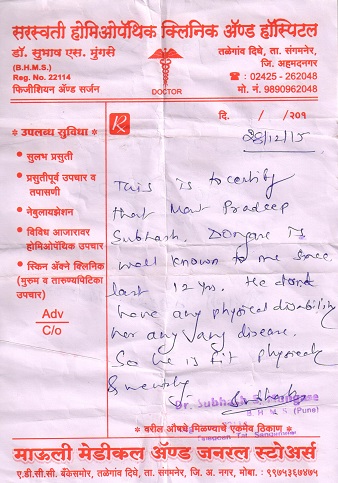 सरस्वती होमिओपॅथिक क्लिनिक ॲण्ड हॉस्पिटल
डॉ. सुभाष एस. मुंगसे
(B.H.M.S.)
Reg. No. 22114
फिजीशियन ॲण्ड सर्जन
DOCTOR
तळेगांव दिघे, ता. संगमनेर,
जि. अहमदनगर
☎ : 02425 - 262048
मो. नं. 9890962048
दि. / /२०१
28/12/15
Rx
* उपलब्ध सुविधा *
• सुलभ प्रसुती
• प्रसुतीपूर्व उपचार व
तपासणी
• नेबुलायझेशन
• विविध आजारावर
होमिओपॅथिक उपचार
• स्किन ॲक्ने क्लिनिक
(मुरुम व तारुण्यपिटिका
उपचार)
Adv
C/o
This is to certify
that Mast Pradeep
Subhash. Dongare is
well known to me since
last 12 yrs. He dont
have any physical disability
her any Vany disease.
So he is fit physicaly
& mentaly
Dr. Subhash S. Mungase
B.H.M.S. (Pune)
Tal. Sangamner
* वरील औषधे मिळण्याचे एकमेव ठिकाण *
माऊली मेडीकल ॲण्ड जनरल स्टोअर्स
ए.डी.सी.सी. बँकेसमोर, तळेगांव दिघे, ता. संगमनेर, जि. अ. नगर, मोबा. : ९९७५३६४४७५